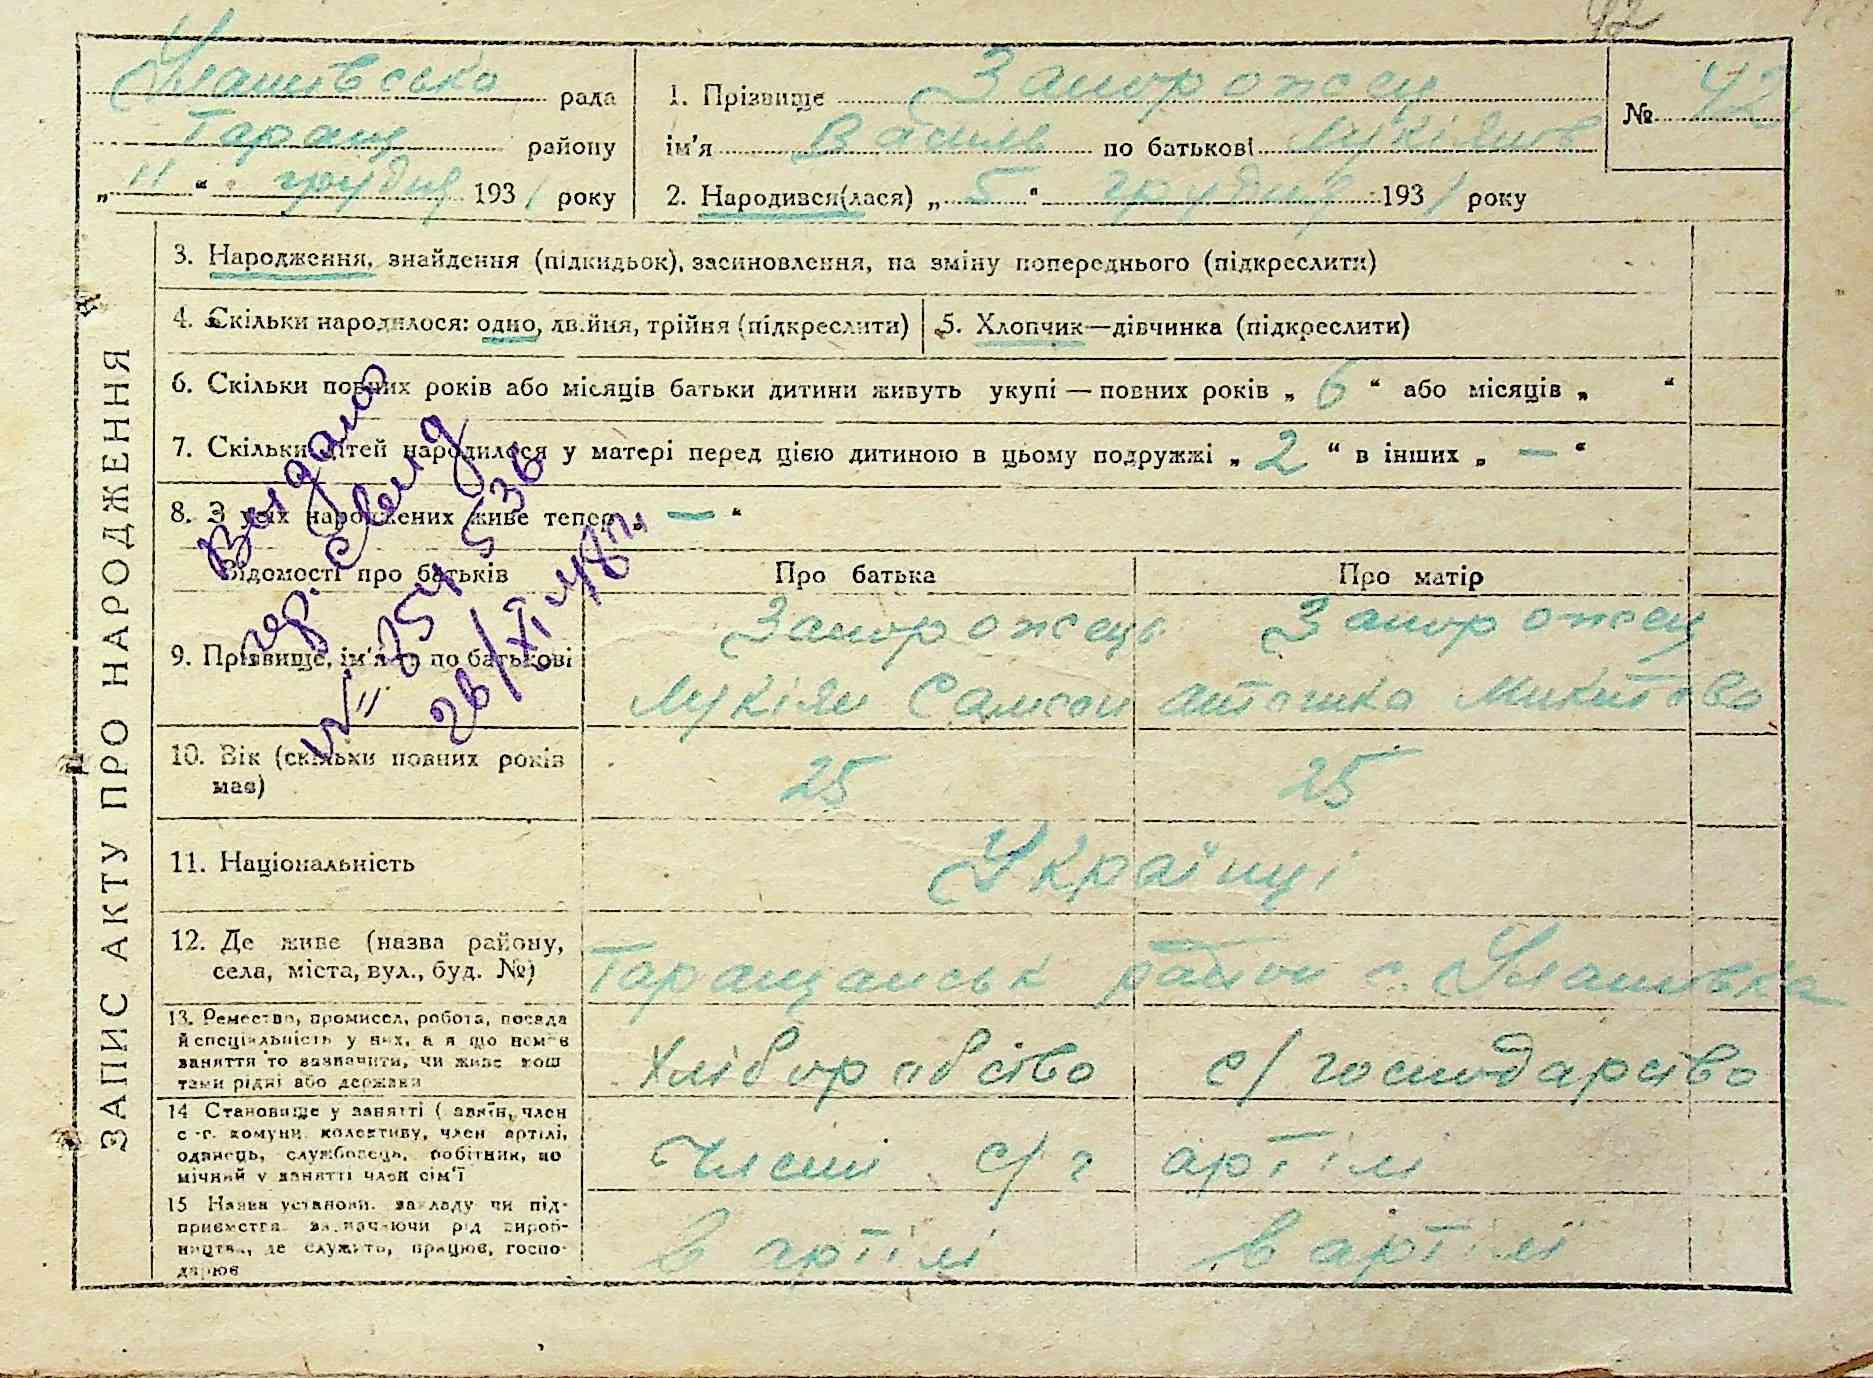 42
Улашівська рада
Таращ району
„ 11 “ грудня 1931 року
1. Прізвище Запорожец
ім'я Василь по батькові Лукіянов
2. Народився(лася) „ 5 “ грудня 1931 року
№ 42
ЗАПИС АКТУ ПРО НАРОДЖЕННЯ
3. Народження, знайдення (підкидьок), засиновлення, на зміну попереднього (підкреслити)
4. Скільки народилося: одно, двійня, трійня (підкреслити)
5. Хлопчик—дівчинка (підкреслити)
6. Скільки повних років або місяців батьки дитини живуть укупі — повних років „ 6 “ або місяців „ “
7. Скільки дітей народилося у матері перед цією дитиною в цьому подружжі „ 2 “ в інших „ — “
8. З усіх народжених живе тепер „ — “
Відомості про батьків
Про батька
Про матір
9. Прізвище, ім'я та по батькові
Запорожець
Лукіян Самсон
Запорожец
Микитова
10. Вік (скільки повних років
має)
25
25
11. Національність
Українці
12. Де живе (назва району,
села, міста, вул., буд. №)
Таращанськ район с. Улашівка
13. Ремество, промисел, робота, посада
й спеціяльність у них, а я що нема
заняття то зазначити, чи живе кош
тами рідні або держави
Хліборобство
с/господарство
14 Становище у занятті (
член
с -г. комуни колективу, член артілі,
одинець, службовець, робітник, по
мічний у занятті член сім'ї
Члени с/г артілі
15 Назва установи, закладу чи під-
приємства, зазначаючи рід вироб-
ництва, де служить, працює, госпо-
дарює
в артілі
в артілі
Выдано
свид
26/XI-48 г.